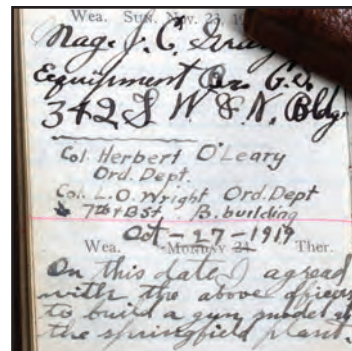 Wea. Sun. Nov. 23, 19
Maj. J. C. Gray
Equipment Div. G.S.
342 S W & N. Bldg
Col. Herbert O'Leary
Ord. Dept.
Col. L. O. Wright Ord. Dept
7th & B St. B. building
Oct - 27 - 1919
Wea. Monday 24 Ther.
On this date I agread
with the above officers
to build a gun model at
the springfield plant.